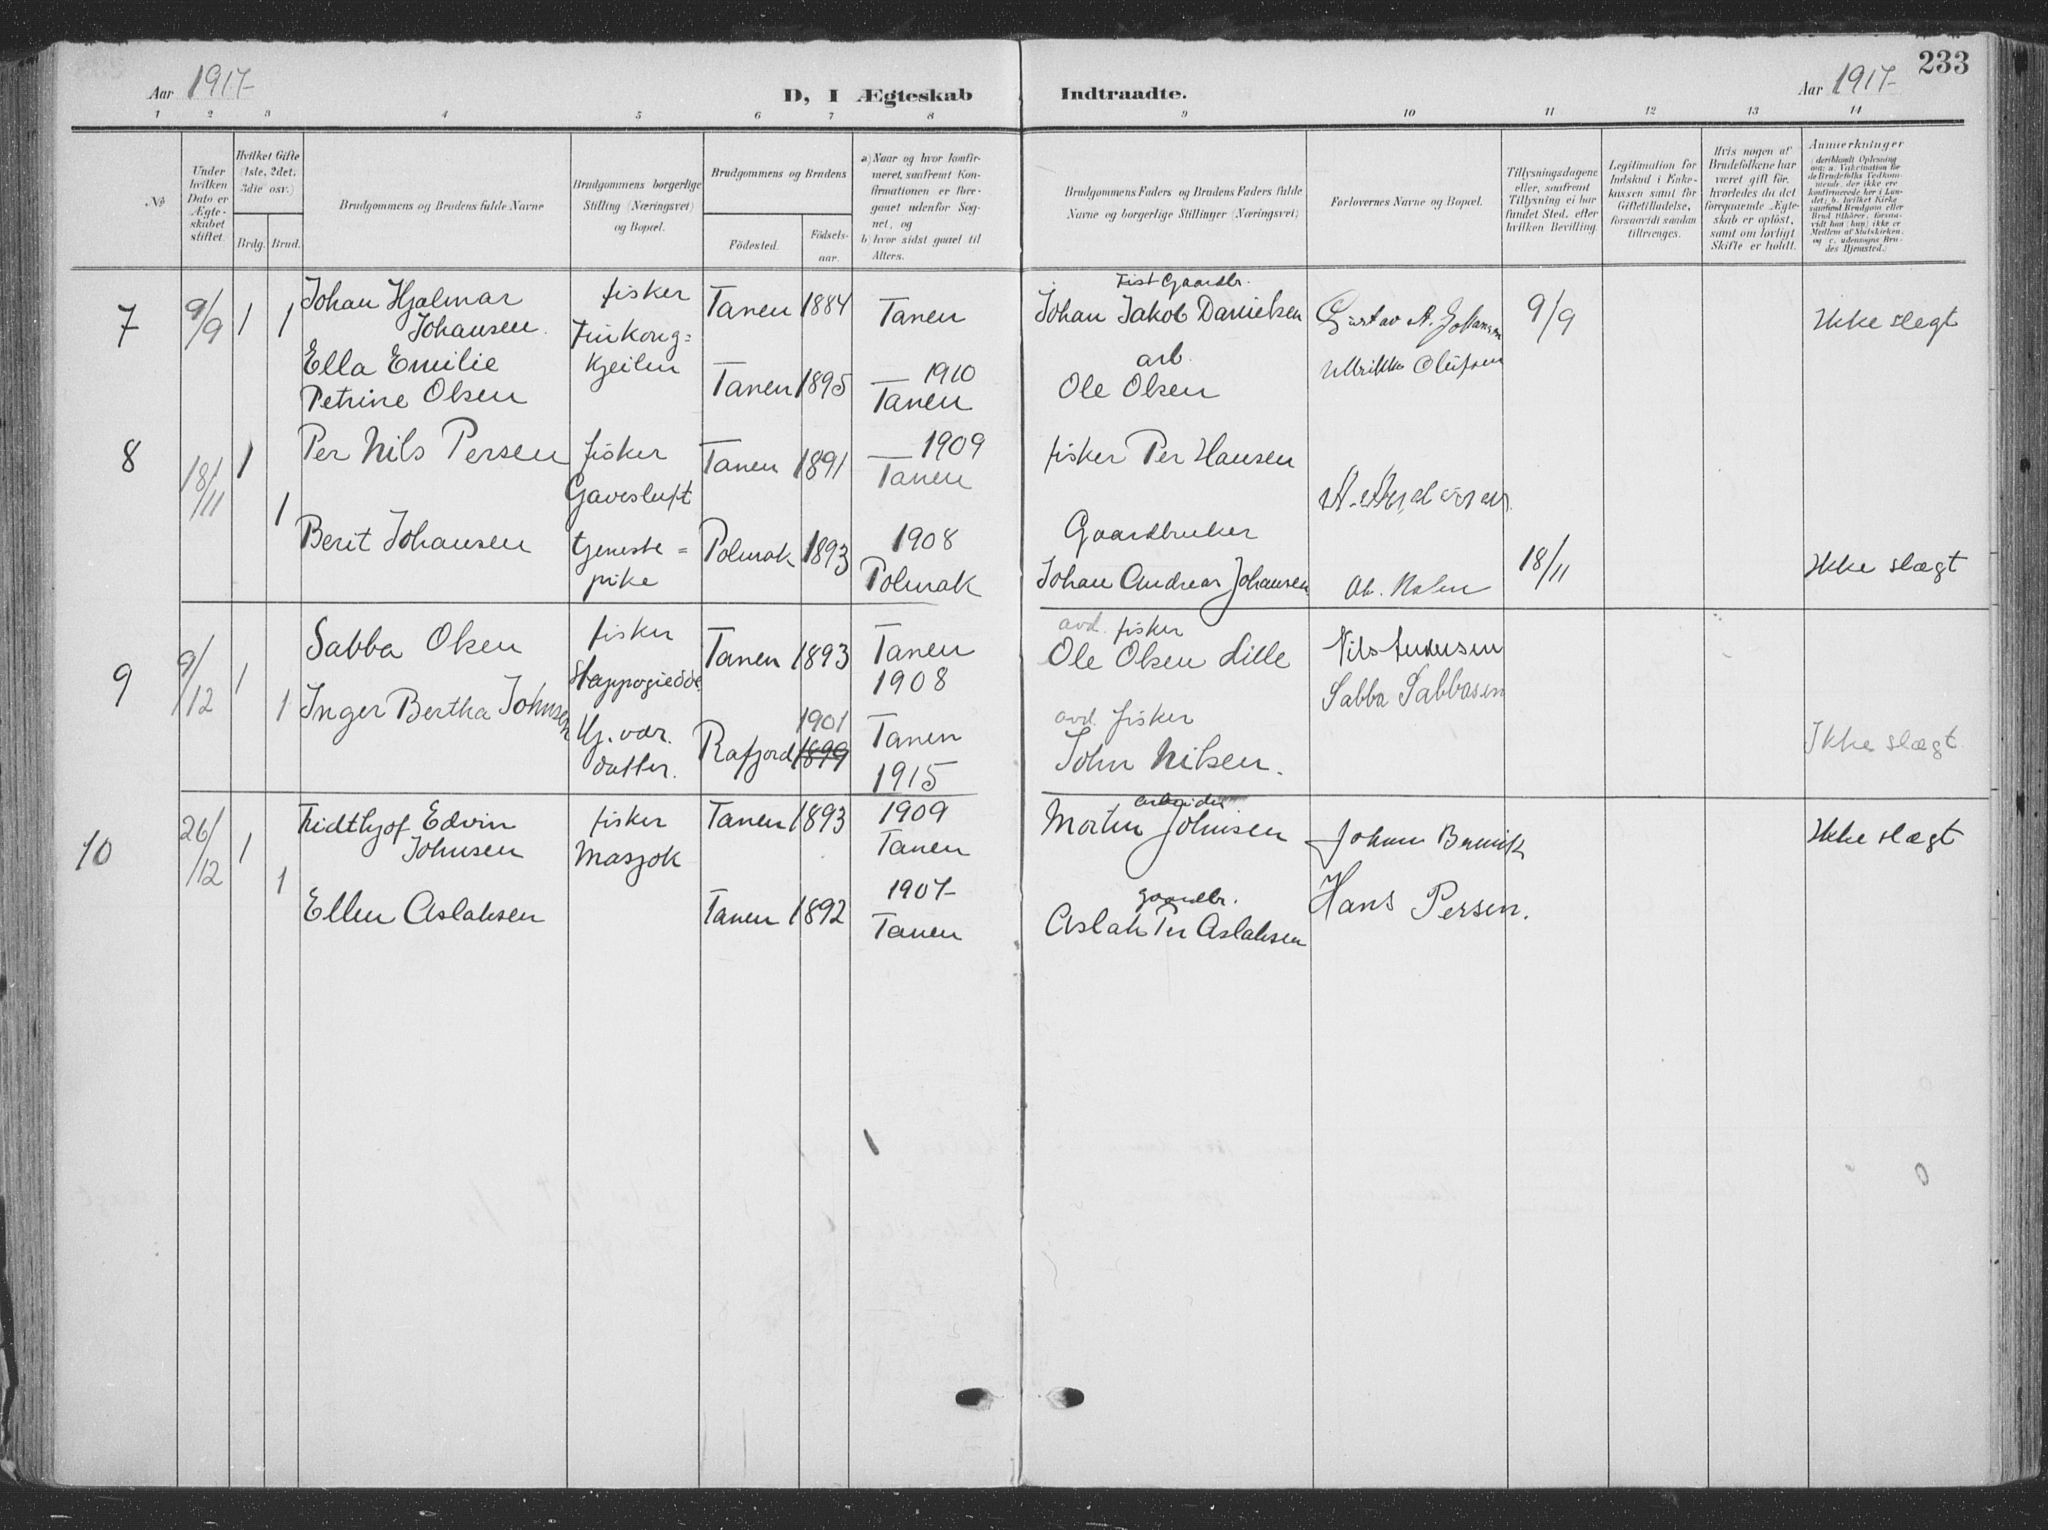 233
Aar 1917
D, I Ægteskab Indtraadte.
Aar 1917
1 2 3 4 5 6 7 8 9 10 11 12 13 14
№
Under hvilken Dato er Ægteskabet stiftet.
Hvilket Gifte (1ste, 2det, 3die osv.)
Brdg. Brud.
Brudgommens og Brudens fulde Navne
Brudgommens borgerlige Stilling (Næringsvei) og Bopæl.
Brudgommens og Brudens
Födested. Födselsaar.
a) Naar og hvor konfirmeret, saafremt Konfirmationen er foregaaet udenfor Sognet, og
b) hvor sidst gaaet til Alters.
Brudgommens Faders og Brudens Faders fulde Navne og borgerlige Stillinger (Næringsvei)
Forlovernes Navne og Bopæl.
Tillysningsdagene eller, saafremt Tillysning ei har fundet Sted, efter hvilken Bevilling.
Legitimation for Indskud i Enkekassen samt for Giftetilladelse, forsaavidt saadan tiltrænges.
Hvis nogen af Brudefolkene har været gift för, hvorledes da det foregaaende Ægteskab er oplöst, samt om lovligt Skifte er holdt.
Anmerkninger
7 9/9 1 1
Johan Hjalmar
Johansen
fisker
Finkong=
kjeilen
Tanen 1884 Tanen
Fist Gaardbr.
Johan Jakob Danielsen
Gustav A. Johansen
9/9
Ikke slegt
Ella Emilie
Petrine Olsen
Tanen 1895 1910
Tanen
arb.
Ole Olsen
Ullrikke Olufsen
8 18/11 1 1
Per Nils Persen
fisker
Gavesluft
Tanen 1891 1909
Tanen
fisker Per Hansen
Berit Johansen
tjeneste=
pike
Polmak 1893 1908
Polmak
Gaardbruker
Johan Andreas Johansen
18/11
Ikke slægt
9 9/12 1 1
Sabba Olsen
fisker
Tanen 1893 Tanen
1908
avd. fisker
Ole Olsen Lille
Nils Andersen
Sabba Sabbasen
Inger Bertha Johnsen
Hj. vær.
datter.
Rafjord 1901
1899
Tanen
1915
avd. fisker
John Nilsen.
Ikke slægt
10 26/12 1 1
Fridthjof Edvin
Johnsen
fisker
Masjok
Tanen 1893 1909
Tanen
arbeider
Morten Johnsen
Johan
Ikke slægt
Ellen Aslaksen
Tanen 1892 1907
Tanen
gaardbr.
Aslak Per Aslaksen
Hans Persen.